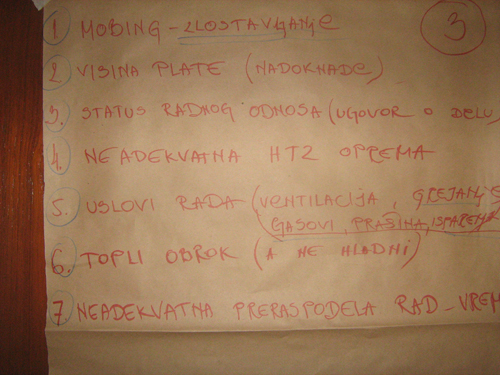 3
1 MOBING - ZLOSTAVLJANJE
2 VISINA PLATE (NADOKNADE)
3. STATUS RADNOG ODNOSA (UGOVOR O DELU)
4. NEADEKVATNA HTZ OPREMA
5. USLOVI RADA (VENTILACIJA, GREJANJE
GASOVI, PRAŠINA, ISPARENJA
6. TOPLI OBROK (A NE HLADNI)
7 NEADEKVATNA PRERASPODELA RAD-VREM